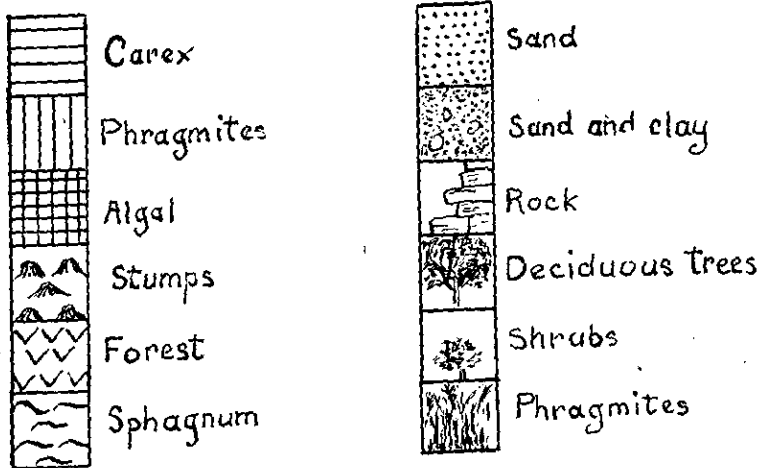 Carex
Phragmites
Algal
Stumps
Forest
Sphagnum
Sand
Sand and clay
Rock
Deciduous trees
Shrubs
Phragmites